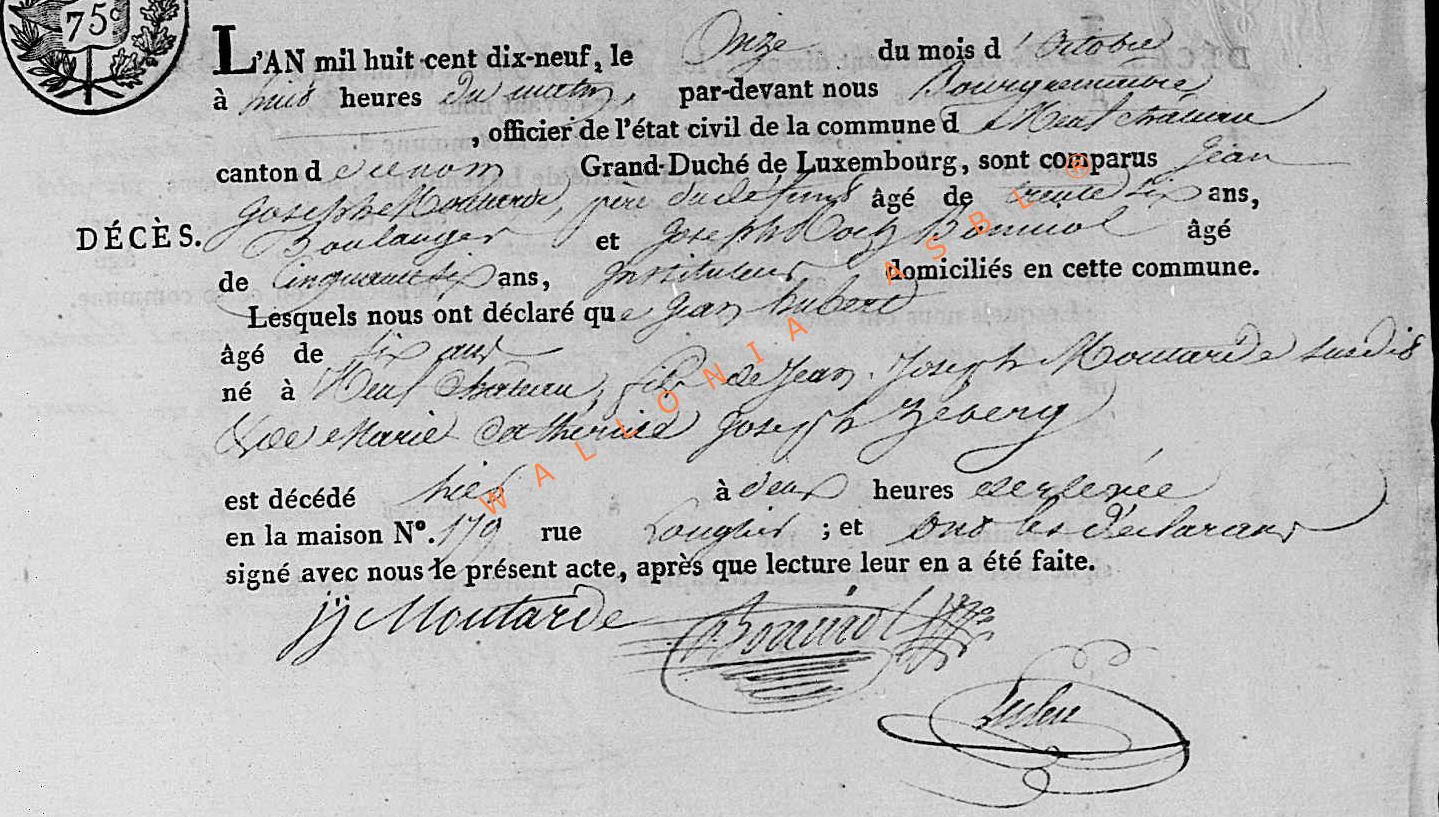 75c
L'AN mil huit cent dix-neuf, le Onze du mois d'Octobre
à huit heures du matin, par-devant nous Bourguemaitre
, officier de l'état civil de la commune de Neufchateau
canton dudit nom Grand-Duché de Luxembourg, sont comparus Jean
Joseph Moutarde, père du défunt âgé de trente six ans,
DÉCÈS.
Boulanger et Joseph Bonniol âgé
de Cinquante six ans, Instituteur domiciliés en cette commune.
Lesquels nous ont déclaré que Jean hubert
âgé de six ans
né à Neufchateau, fils de Jean Joseph Moutarde susdit
& de Marie Catherine Joseph
est décédé hier à deux heures de relevée
en la maison N°. 179 rue Longlier ; et ont les déclarans
signé avec nous le présent acte, après que lecture leur en a été faite.
jj Moutarde Bonniol
WALLONIA ASBL ®